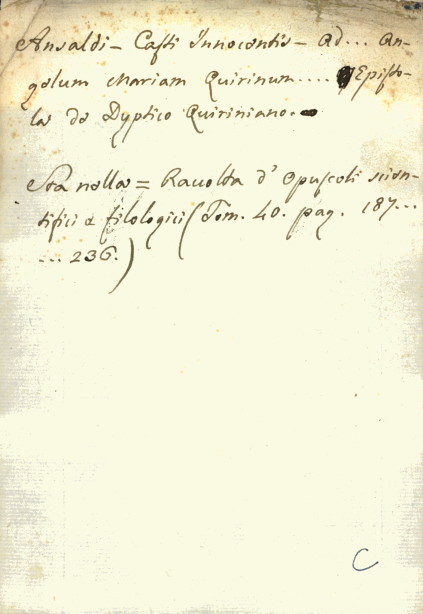 Ansaldi - Casti Innocentis - Ad... An-
gelum Mariam Quirinum.... Episto-
la de Dyptico Quiriniano.
Sta nella = Racolta d' Opuscoli scien-
tifici e filologici (Tom. 40. pag. 187...
... 236.)
C